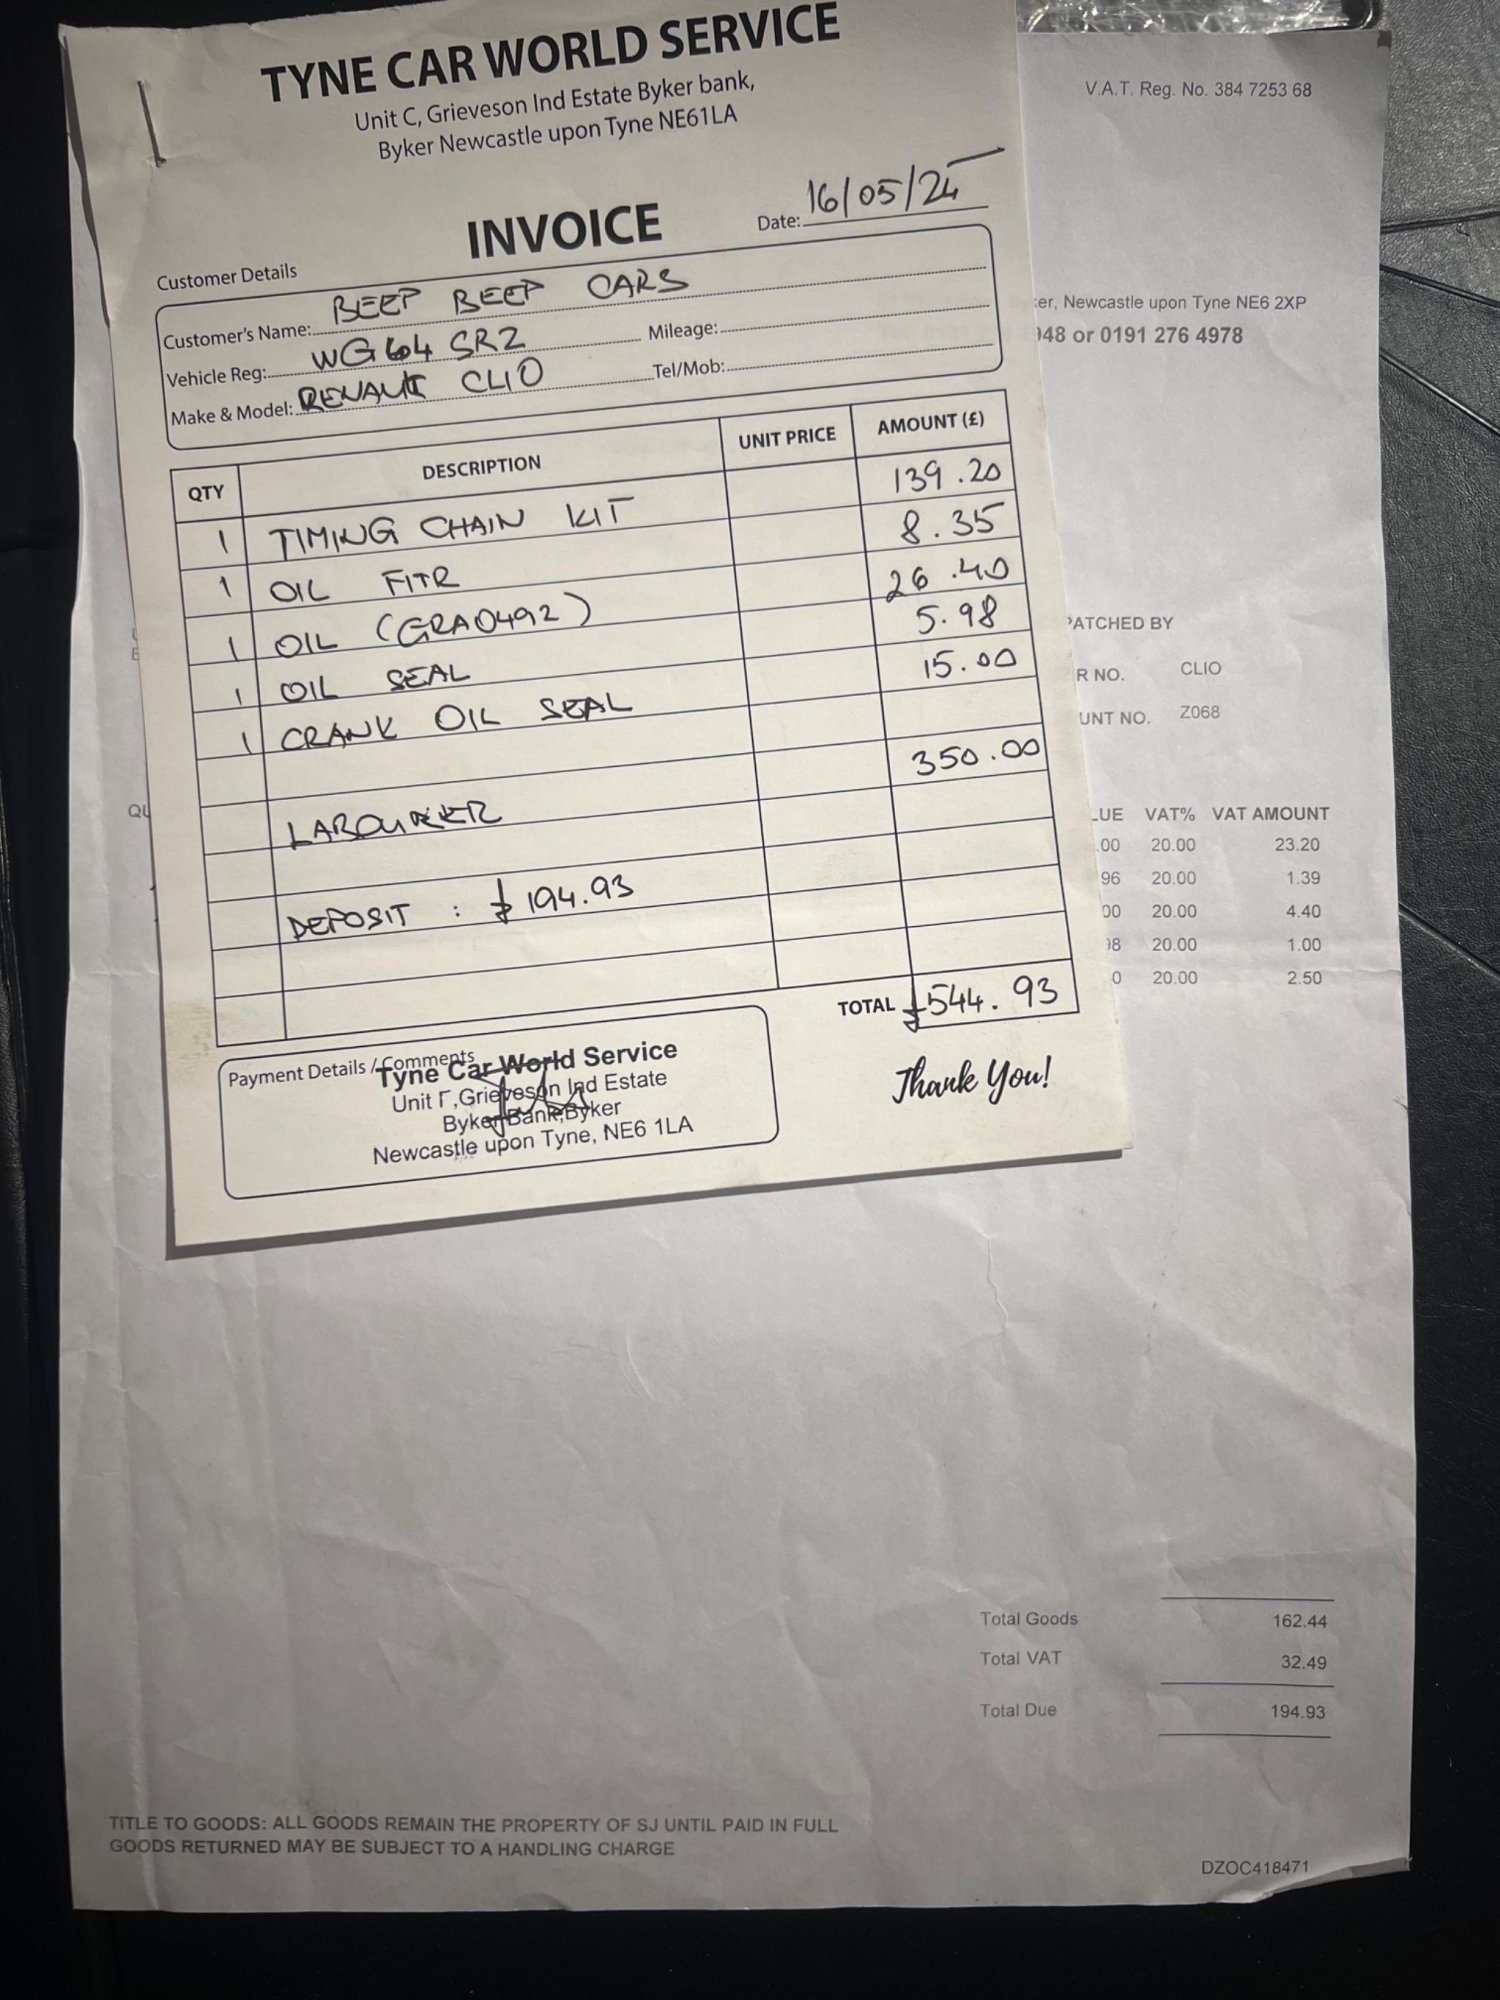 TYNE CAR WORLD SERVICE
Unit C, Grieveson Ind Estate Byker bank,
Byker Newcastle upon Tyne NE61LA
INVOICE
Date: 16/05/25
Customer Details
Customer's Name: BEEP BEEP CARS
Vehicle Reg: WG64 SRZ Mileage:
Make & Model: RENAULT CLIO Tel/Mob:
QTY DESCRIPTION UNIT PRICE AMOUNT (£)
1 TIMING CHAIN KIT 139.20
1 OIL FITR 8.35
1 OIL (GRA0492) 26.40
1 OIL SEAL 5.98
1 CRANK OIL SEAL 15.00
LABOURER 350.00
DEPOSIT : £ 194.93
TOTAL £544.93
Payment Details / Comments
Tyne Car World Service
Unit Grieveson Ind Estate
Byker Bank, Byker
Newcastle upon Tyne, NE6 1LA
Thank You!
V.A.T. Reg. No. 384 7253 68
er, Newcastle upon Tyne NE6 2XP
948 or 0191 276 4978
PATCHED BY
R NO. CLIO
UNT NO. Z068
QU
LUE VAT% VAT AMOUNT
.00 20.00 23.20
96 20.00 1.39
00 20.00 4.40
98 20.00 1.00
0 20.00 2.50
Total Goods 162.44
Total VAT 32.49
Total Due 194.93
TITLE TO GOODS: ALL GOODS REMAIN THE PROPERTY OF SJ UNTIL PAID IN FULL
GOODS RETURNED MAY BE SUBJECT TO A HANDLING CHARGE
DZOC418471